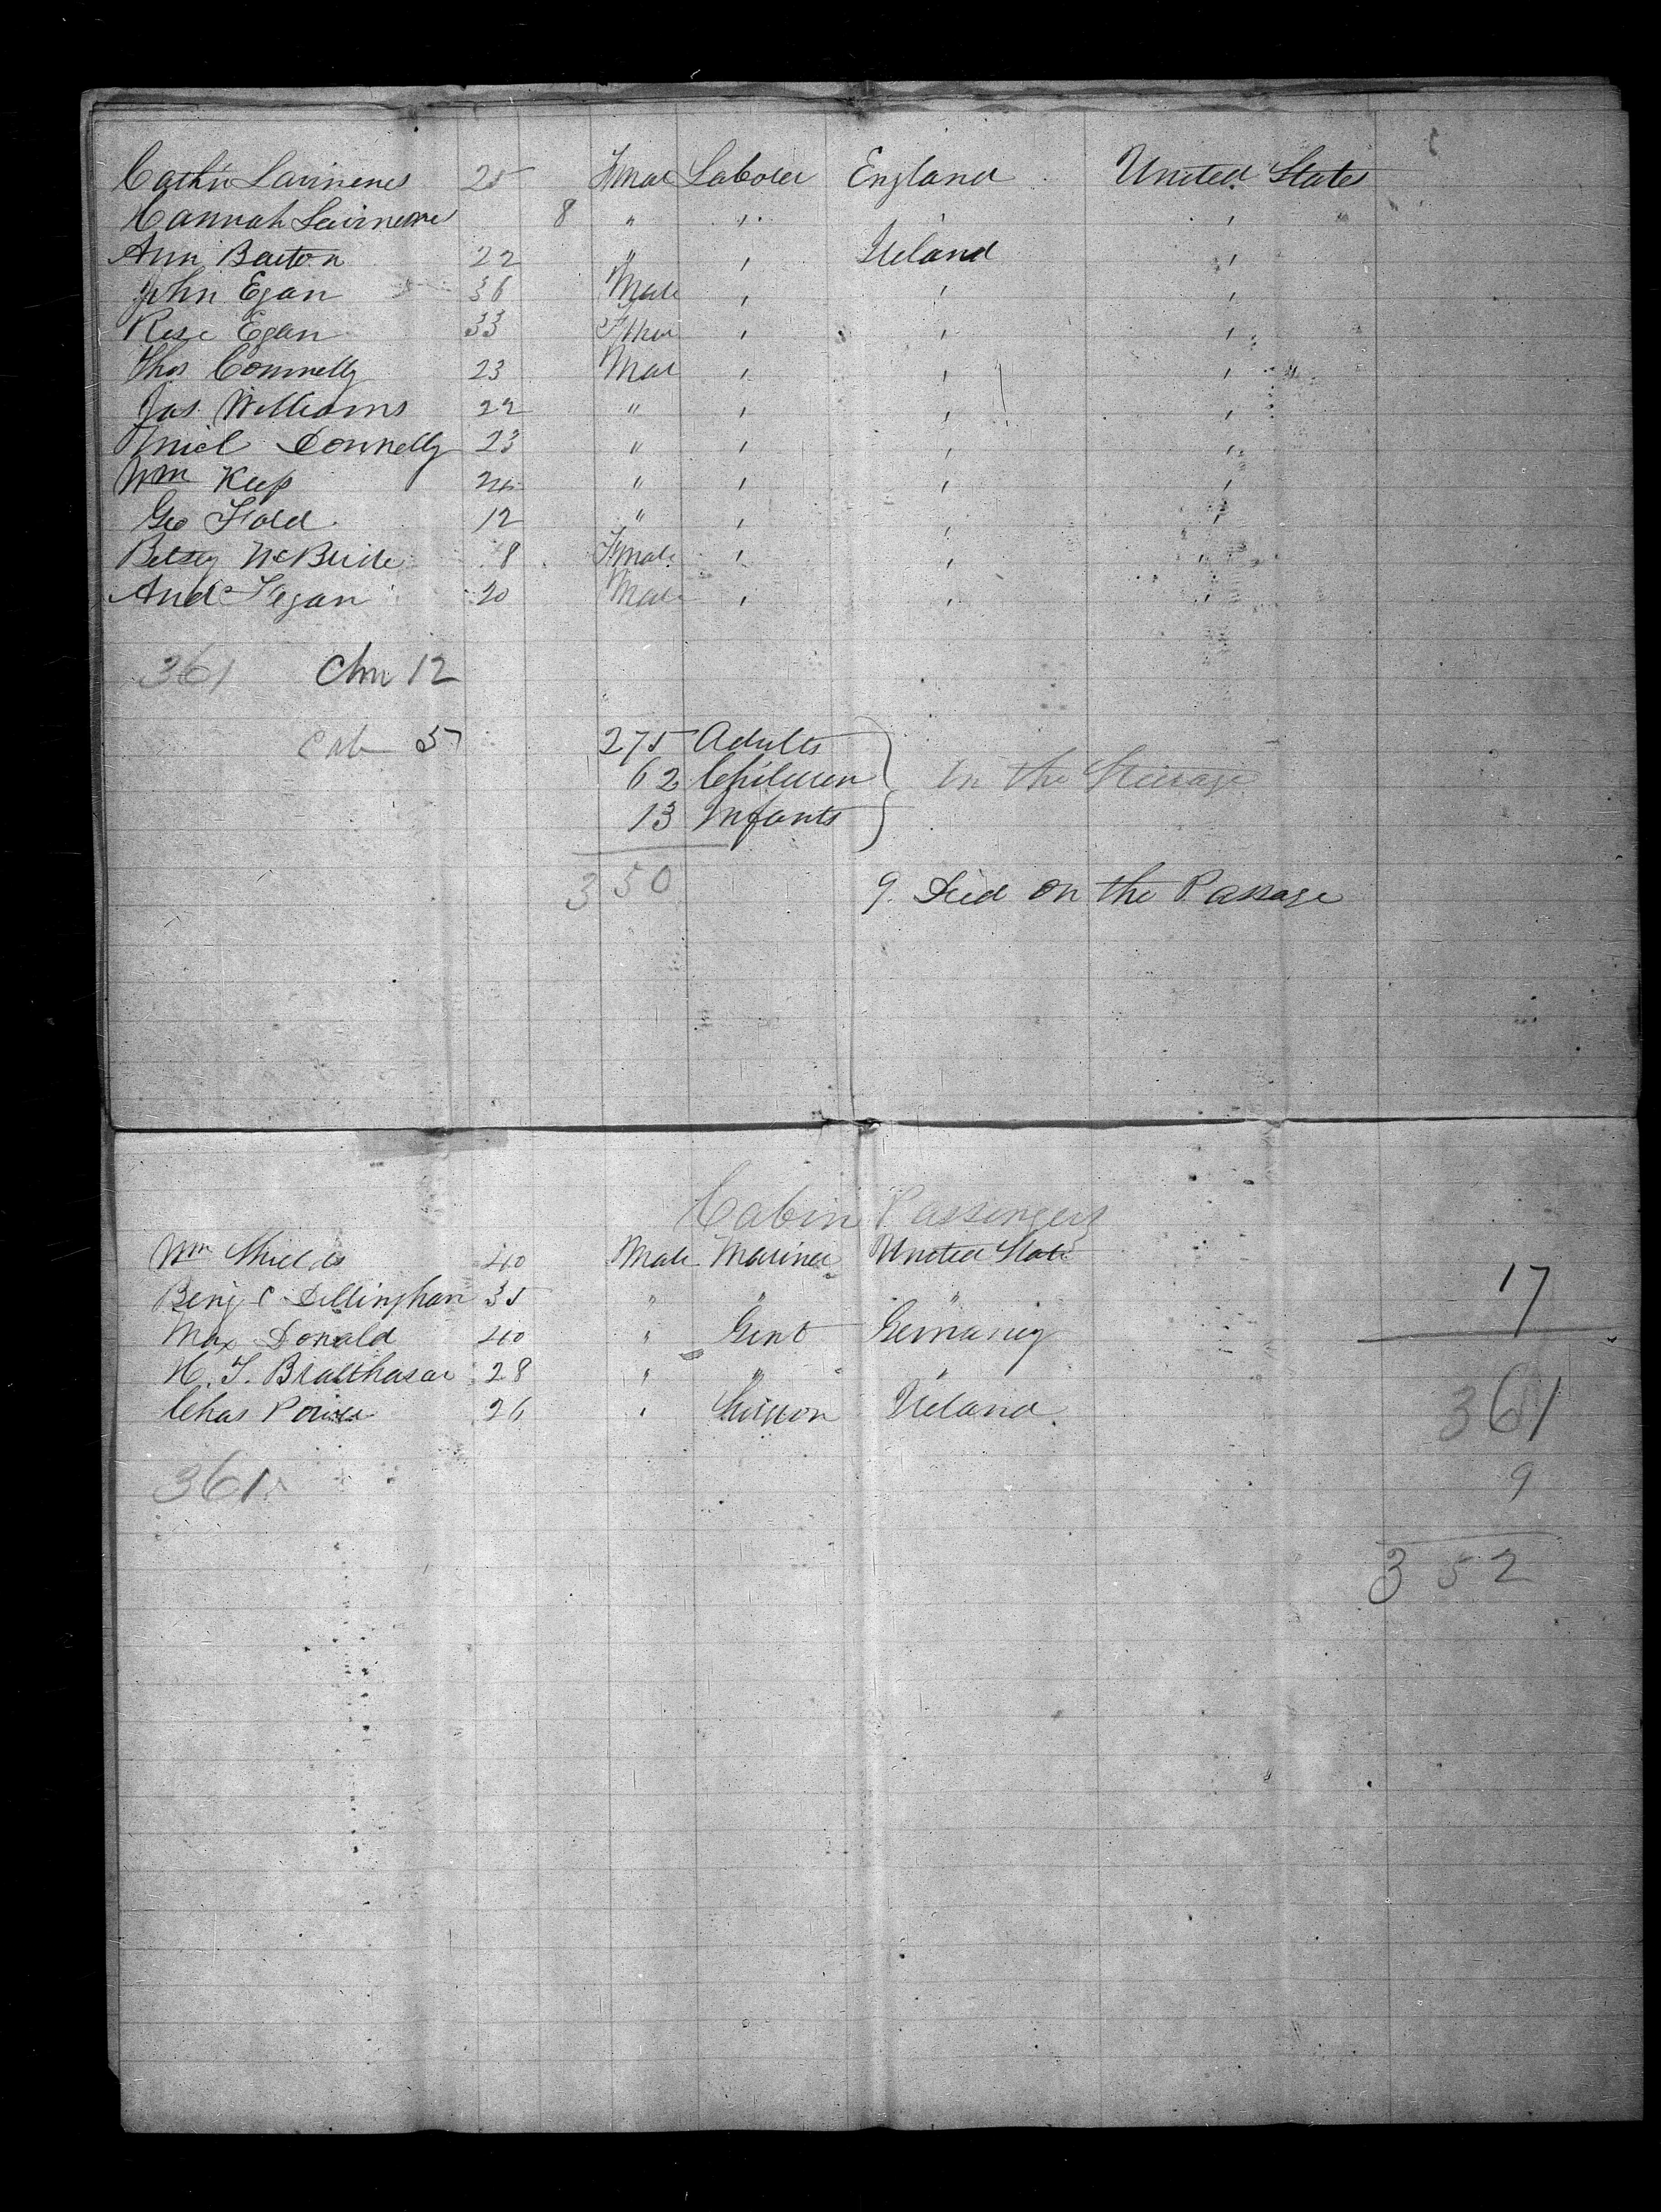 Cath'n Lavinenes 25 Femal Laborer England United States
Hannah Lavinene 8 " " " "
Ann Barton 22 " " Ireland "
John Egan 36 Male " " "
Rose Egan 33 " " "
Thos Connelly 23 Mal " " "
Jas. Williams 22 " " " "
Mich Donnelly 23 " " " "
Wm Keep 24 " " " "
Geo 12 " " " "
Betsey McBride 8 Female " " "
And Fegan 20 Male " " "
361 Chn 12
Cab 5
275 Adults
62 Children In the Steerage
13 Infants
350
9. Died on the Passage
Cabin Passengers
Wm Shields 40 Male Mariner United State
17
Benj C Dillingham 35 " " "
Max Donald 40 " Gent Germany
H. T. Bralthasar 28 " " "
361
Chas Power 26 " Ireland
361
9
352